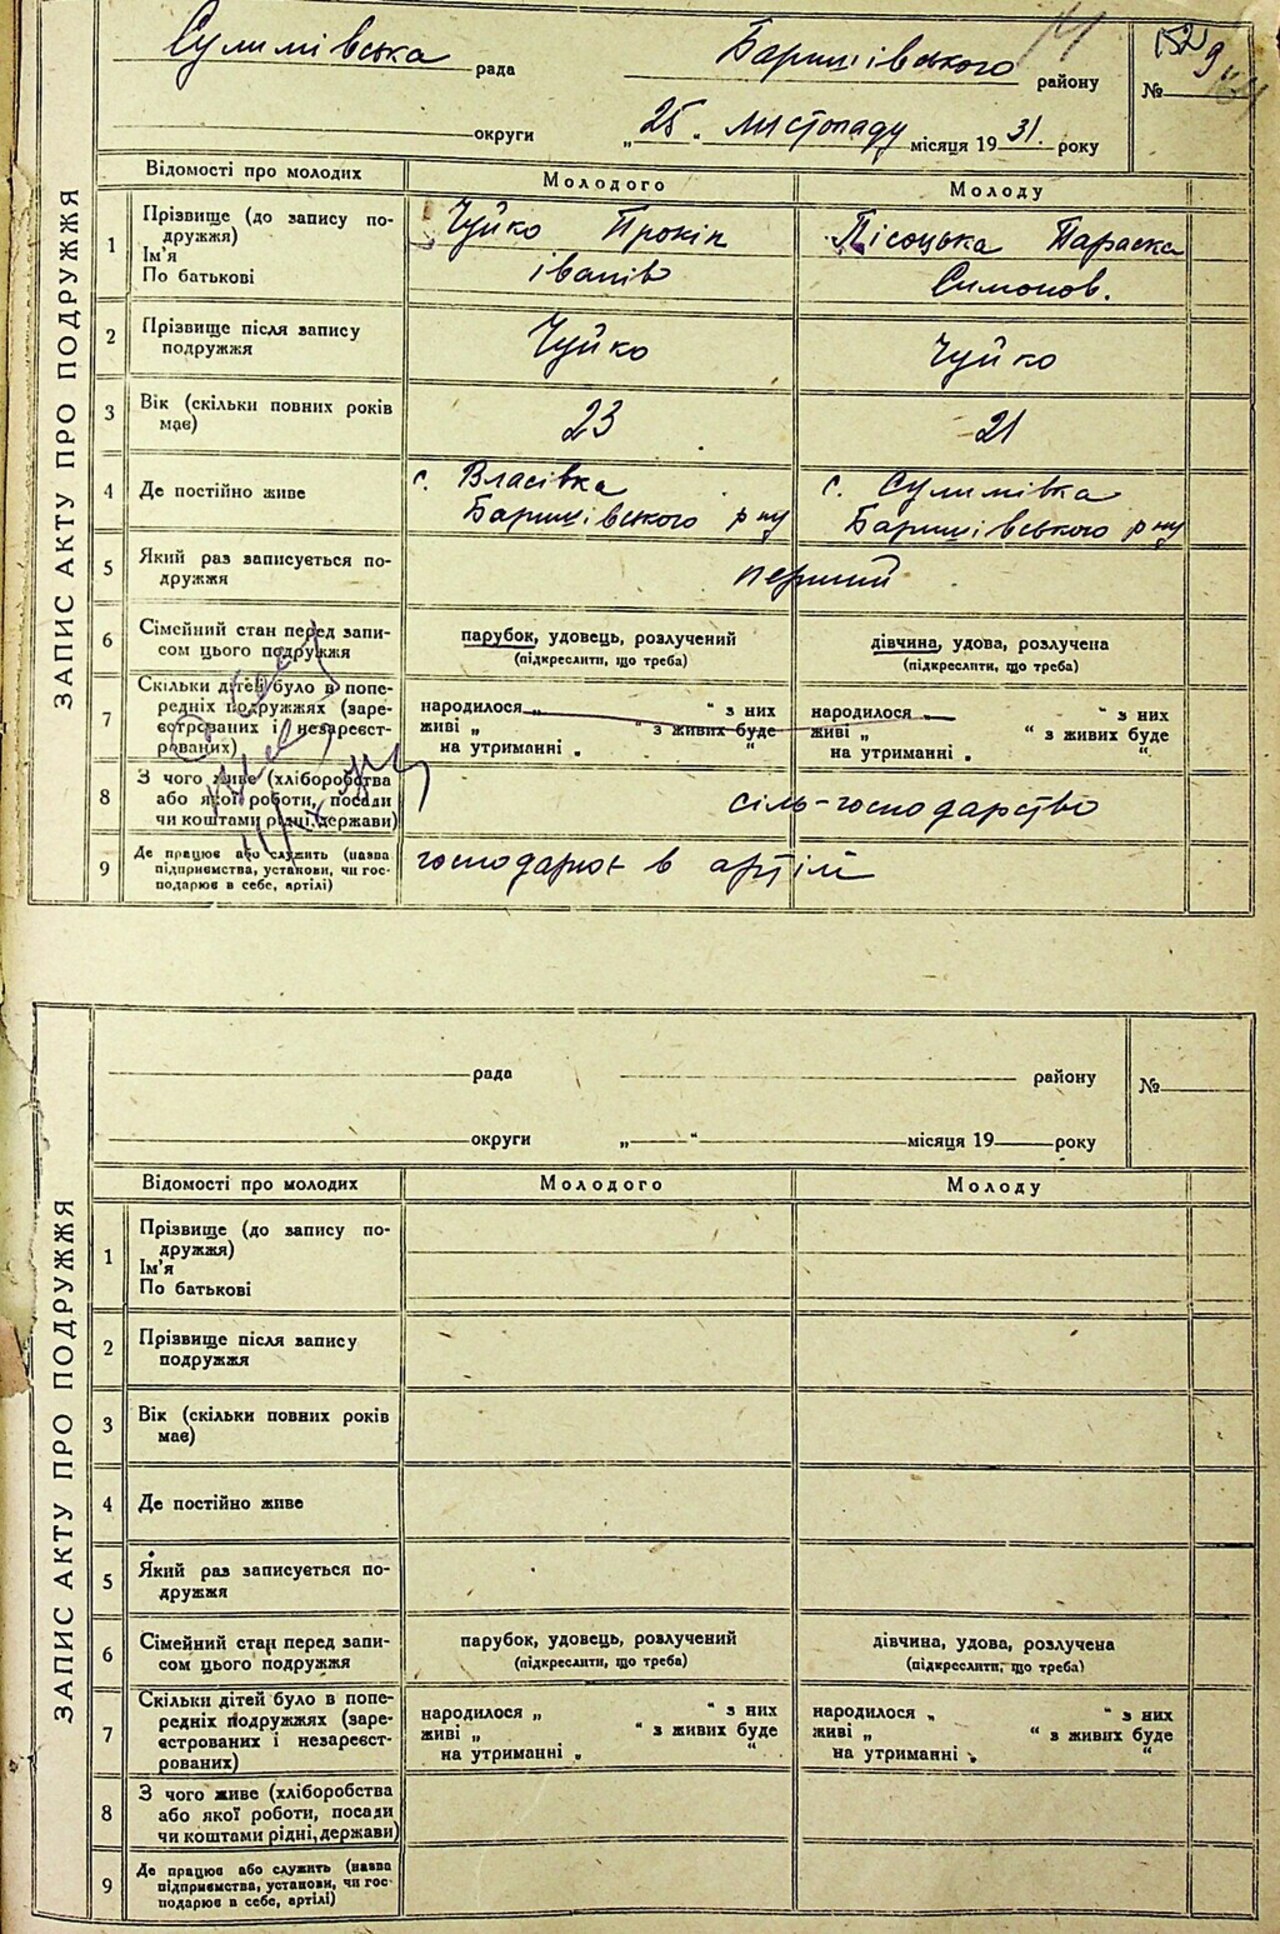 Сулимівська рада Баришівського району
№ 9
округи „25" листопаду місяця 1931. року
ЗАПИС АКТУ ПРО ПОДРУЖЖЯ
Відомості про молодих Молодого Молоду
1 Прізвище (до запису по-
дружжя)
Ім'я
По батькові
Чуйко Прокіп
іванів
Пісоцька Параска
Симонов.
2 Прізвище після запису
подружжя
Чуйко Чуйко
3 Вік (скільки повних років
має)
23 21
4 Де постійно живе
с. Власівка
Баришівського р ну
с. Сулимівка
Баришівського р ну
5 Який раз записується по-
дружжя
перший
6 Сімейний стан перед запи-
сом цього подружжя
парубок, удовець, розлучений
(підкреслити, що треба)
дівчина, удова, розлучена
(підкреслити, що треба)
7 Скільки дітей було в попе-
редніх подружжях (заре-
єстрованих і незареєст-
рованих)
народилося „ “ з них
живі „ “ з живих буде
на утриманні „ “
народилося „ “ з них
живі „ “ з живих буде
на утриманні „ “
8 З чого живе (хліборобства
або якої роботи, посади
чи коштами рідні, держави)
сіль-господарство
9 Де працює або служить (назва
підприємства, установи, чи гос-
подарює в себе, артілі)
господарює в артілі
рада району №
округи „ “ місяця 19 року
ЗАПИС АКТУ ПРО ПОДРУЖЖЯ
Відомості про молодих Молодого Молоду
1 Прізвище (до запису по-
дружжя)
Ім'я
По батькові
2 Прізвище після запису
подружжя
3 Вік (скільки повних років
має)
4 Де постійно живе
5 Який раз записується по-
дружжя
6 Сімейний стан перед запи-
сом цього подружжя
парубок, удовець, розлучений
(підкреслити, що треба)
дівчина, удова, розлучена
(підкреслити, що треба)
7 Скільки дітей було в попе-
редніх подружжях (заре-
єстрованих і незареєст-
рованих)
народилося „ “ з них
живі „ “ з живих буде
на утриманні „ “
народилося „ “ з них
живі „ “ з живих буде
на утриманні „ “
8 З чого живе (хліборобства
або якої роботи, посади
чи коштами рідні, держави)
9 Де працює або служить (назва
підприємства, установи, чи гос-
подарює в себе, артілі)